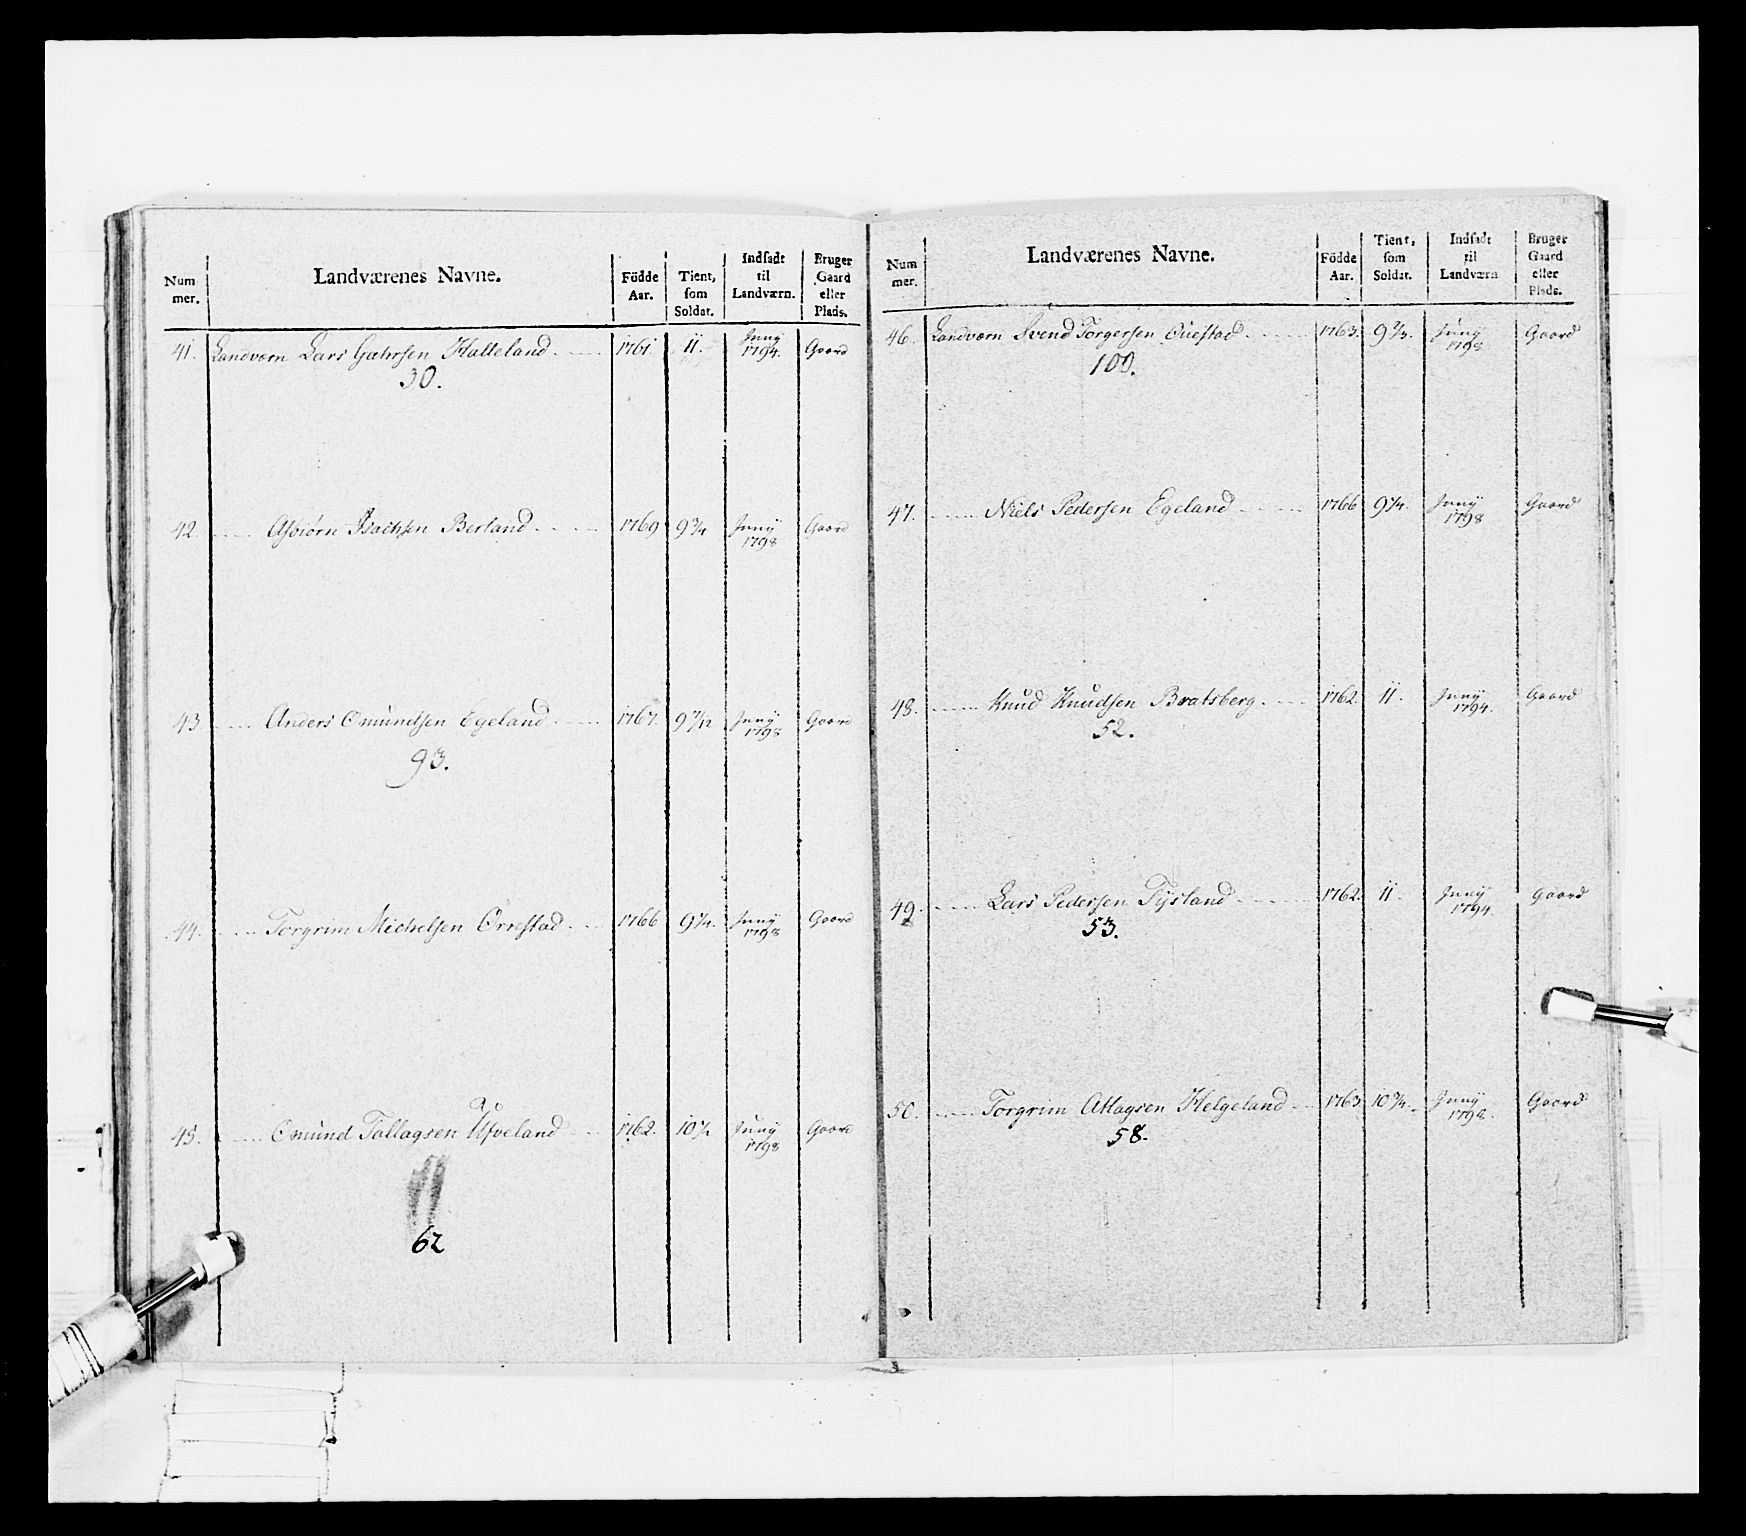 Num mer. | Landværenes Navne. | Födde Aar. | Tient, som Soldat. | Indsadt til Landværn. | Bruger Gaard eller Plads.
41. Landværn Lars Gæhrsen Halleland 1761. 11. Junÿ 1794. Gaard
30.
42. Asbiørn Isachsen Berland 1769 9¾ Junÿ 1798 Gaard
43. Anders Omundsen Egeland 1767. 9 7/12 Junÿ 1798 Gaard
93.
44. Torgrim Michelsen Orrestad 1766 9¼. Junÿ 1798 Gaard
45. Omund Tollagsen Ufveland 1762. 10½ Junÿ 1798 Gaard
62
Num mer. | Landværenes Navne. | Födde Aar. | Tient, som Soldat. | Indsadt til Landværn | Bruger Gaard eller Plads.
46. Landværn Svend Torgersen Questad 1763. 9⅔. Junÿ 1798 Gaard
100.
47. Niels Pedersen Egeland 1766 9¼. Junÿ 1798 Gaard
48. Knud Knudsen Bratsberg 1762. 11. Junÿ 1794. Gaard
52.
49. Lars Pedersen Tÿsland 1762. 11. Junÿ 1794 Gaard
53.
50. Torgrim Atlagsen Helgeland 1763 10¾. Junÿ Gaard
58.